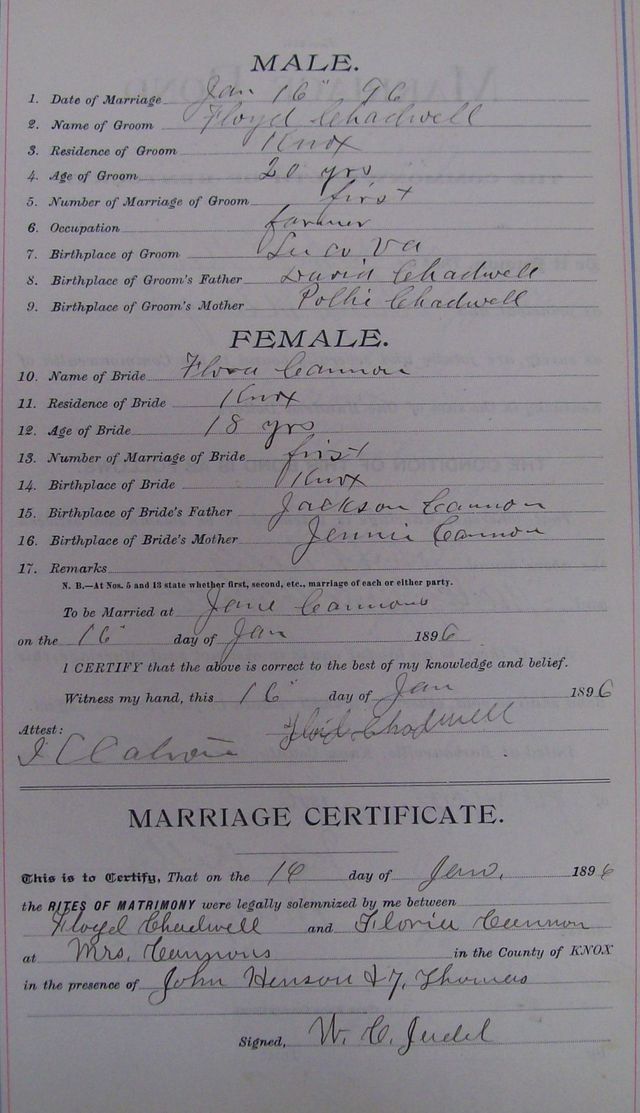 MALE.
1. Date of Marriage Jan 16" 96
2. Name of Groom Floyd Chadwell
3. Residence of Groom Knox
4. Age of Groom 20 yrs
5. Number of Marriage of Groom first
6. Occupation farmer
7. Birthplace of Groom Lee co Va
8. Birthplace of Groom's Father David Chadwell
9. Birthplace of Groom's Mother Pollie Chadwell
FEMALE.
10. Name of Bride Flora Cannon
11. Residence of Bride Knox
12. Age of Bride 18 yrs
13. Number of Marriage of Bride first
14. Birthplace of Bride Knox
15. Birthplace of Bride's Father Jackson Cannon
16. Birthplace of Bride's Mother Jennie Cannon
17. Remarks
N. B.—At Nos. 5 and 13 state whether first, second, etc., marriage of each or either party.
To be Married at Jane Cannons
on the 16" day of Jan 1896
I CERTIFY that the above is correct to the best of my knowledge and belief.
Witness my hand, this 16" day of Jan 1896
Attest: Floid Chadwell
This is to Certify, That on the 16 day of Jan, 1896
MARRIAGE CERTIFICATE.
the RITES OF MATRIMONY were legally solemnized by me between
Floyd Chadwell and Floria Cannon
at Mrs. Cannons in the County of KNOX
in the presence of John Henson & Thomas
Signed, W. C.